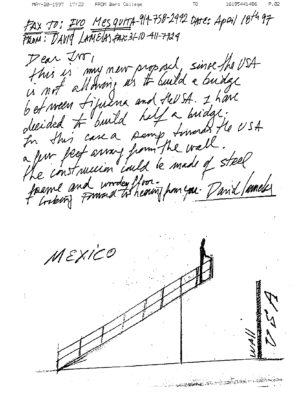 MAY-20-1997 17:22 FROM Bard College TO 16195441486 P.02
FAX TO: IVO MESQUITA-914-758-2442 DATE: April 18th 97
FROM: DAVID LAMELAS FAX: 310-411-7924
Dear Ivo,
This is my new proposal, since the USA
is not allowing us to build a bridge
between Tijuana and the USA. I have
decided to build half a bridge.
In this case a ramp towards the USA
a few feet away from the wall.
The construction could be made of steel
frame and wooden floor.
Looking forward to hearing from you. David Lamelas
MEXICO
wall
USA